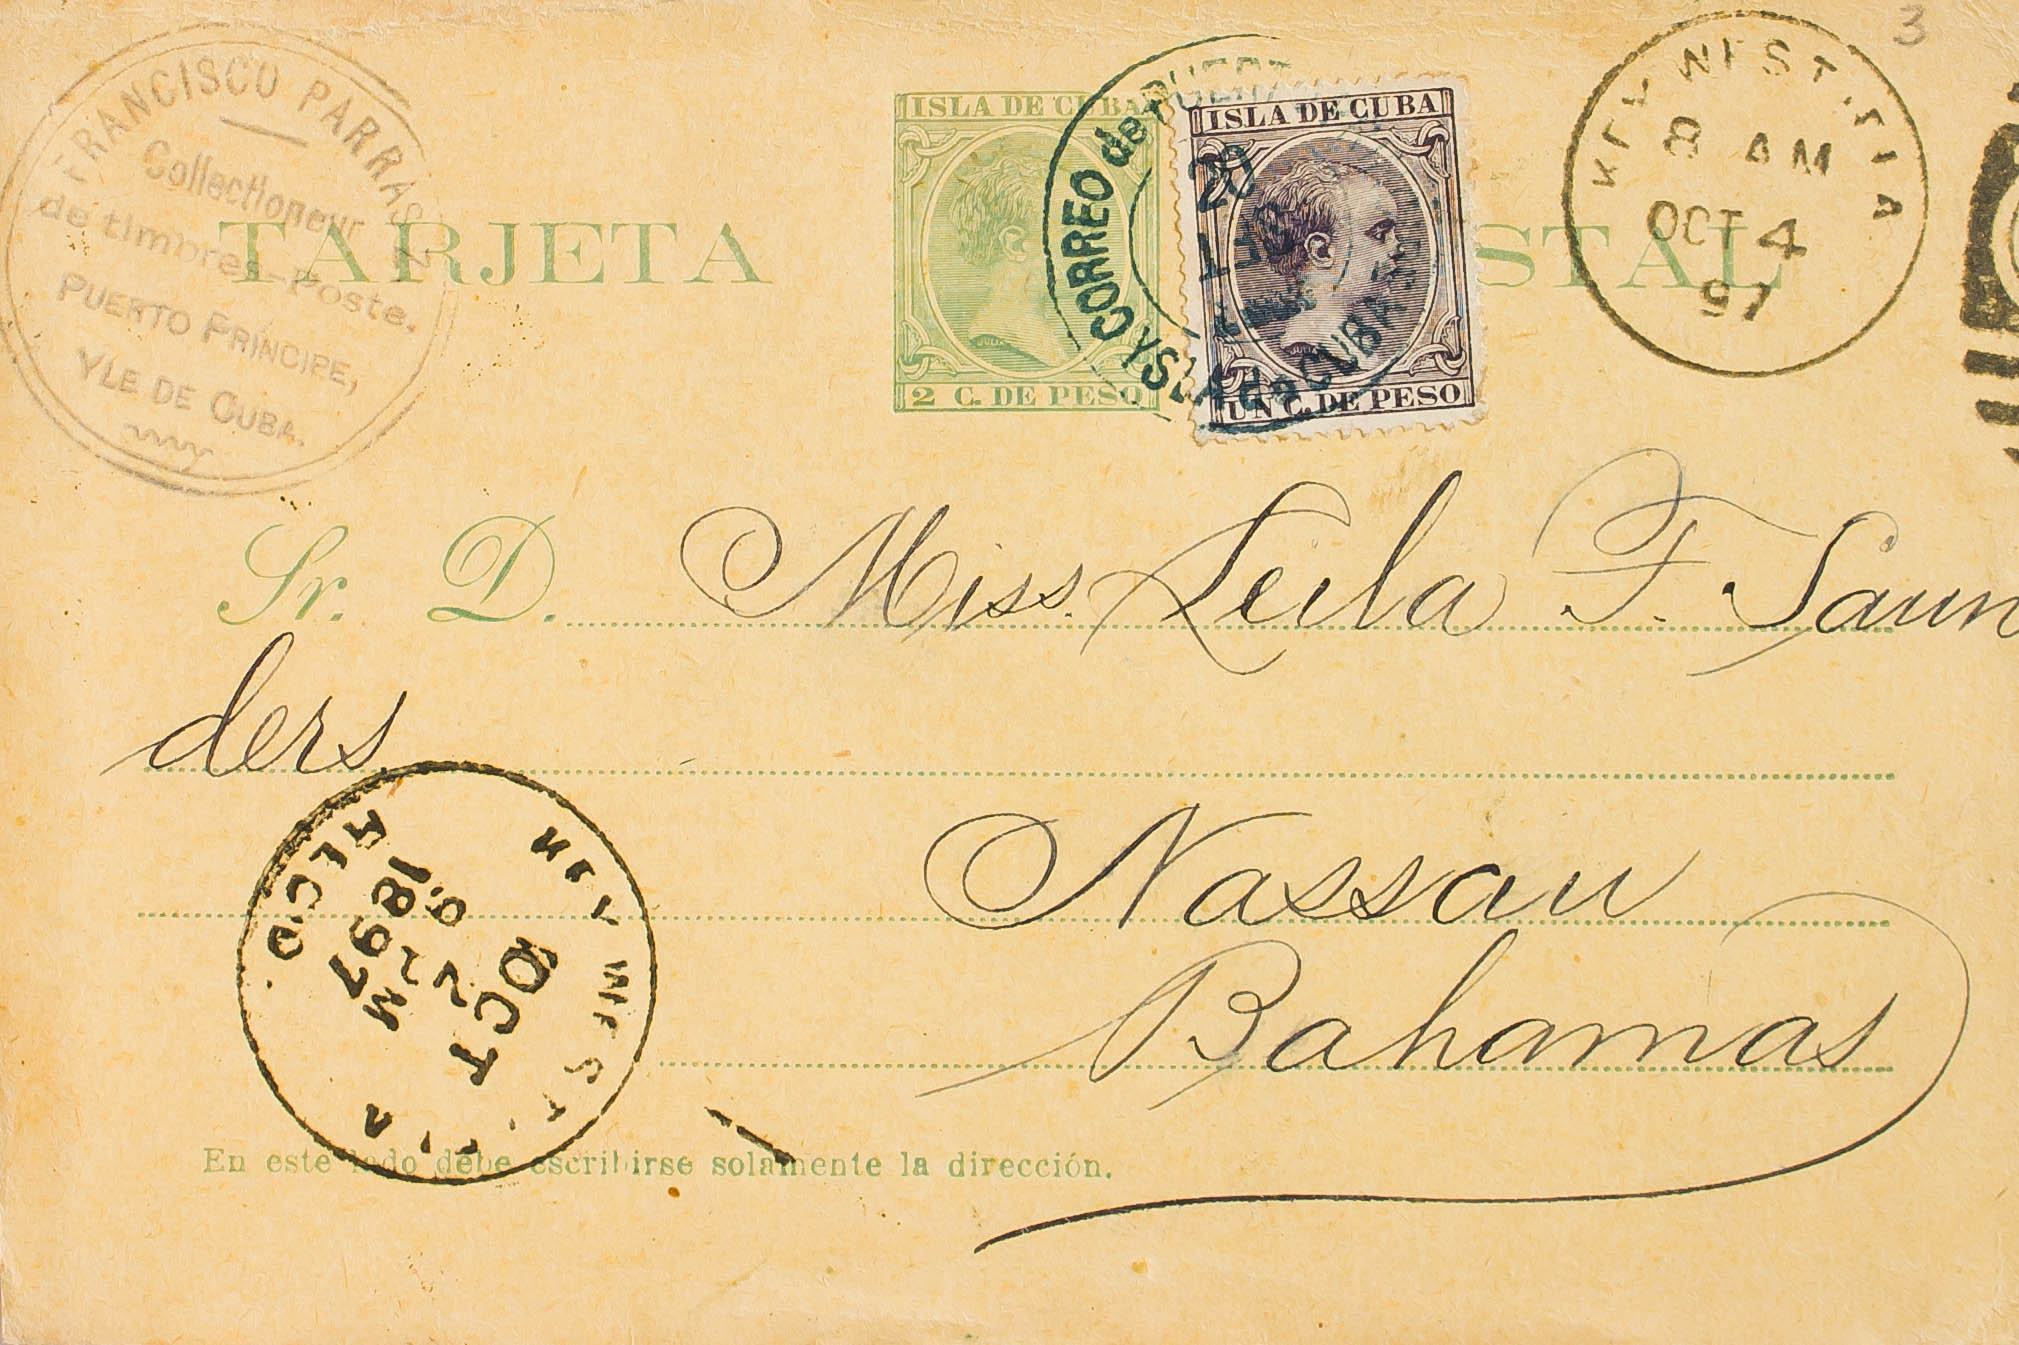 FRANCISCO PARRAS
Collectioneur
de timbres-Poste.
PUERTO PRINCIPE,
YLE DE CUBA.
TARJETA STAL
ISLA DE CUBA
2 C. DE PESO
ISLA DE CUBA
UN C. DE PESO
CORREO de
20
YSLA de CUBA
KEY WEST, FLA
8 AM
OCT 4
97
3
Sr. D. Miss Leila F. Saun
ders
Nassau
Bahamas
KEY WEST
REC'D.
OCT
2
1897
En este lado debe escribirse solamente la dirección.